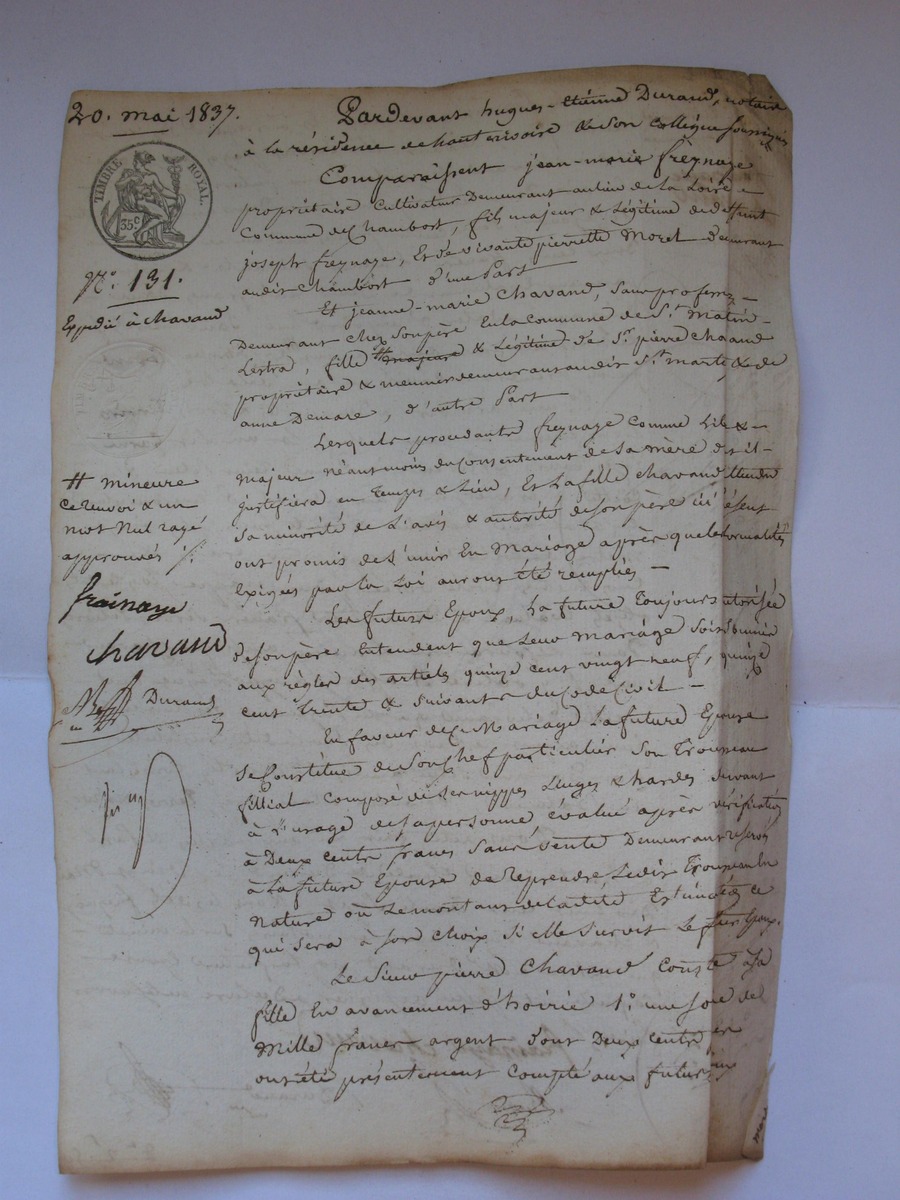 20. mai 1837.
TIMBRE ROYAL.
35 c
N.° 131.
Expédié à chavand
# mineure
ce renvoi & un
mot Nul rayé
approuvés ./.
frainage
chavand
Durand
Pardevant hugues-Etienne Durand, notaire
à la résidence de hauterivoire & son collègue soussignés
Comparaissent jean-marie freynage
propriétaire Cultivateur Demeurant au lieu de la Loire
Commune de Chambost, fils majeur & Légitime de deffunt
joseph freynage, Et de vivante pierrette Morel Demeurant
audit Chambost D'une Part
Et jeanne-marie Chavand, Sans profession
Demeurant Chez Son père En la Commune de S.t Matin-
Lestra, fille # majeure & Légitime de S.r pierre Chavand
propriétaire & meunier demeurant audit S.t Martin, & de
anne Demare, d'autre Part
Lesquels procedants freynage Comme Libre &
majeur Néantmoins du Consentement de Sa mère dont il
justifiera en Temps & Lieu, Et La fille chavand attendu
Sa minorité de L'avis & autorité de Son père ici présent
ont promis de S'unir En Mariage après que les formalités
Exigées par la Loi auront été remplies —
Les futurs Epoux, La future Toujours autorisée
de Son père Entendent que Leur mariage Soit Soumis
aux règles des articles quinze cent vingt neuf, quinze
cent trente & Suivants du Code Civil —
En faveur de Ce Mariage La future Epouse
Se Constitue de Son Chef particulier Son Trousseau
fillial Composé de Ses nippes Linges & hardes Servant
à L'usage de Sa personne évalué après vérification
à Deux cents francs Sans vente Demeurant réservé
à La future Epouse de Reprendre Ledit Trousseau En
Nature ou Le montant de La dite Estimation ce
qui Sera à Son Choix Si elle Survit Le futur Epoux.
Le Sieur pierre Chavand Constitue à Sa
fille En avancement d'hoirie 1.° une Somme de
Mille francs argent dont Deux Cents
ont été présentement Compté aux futurs